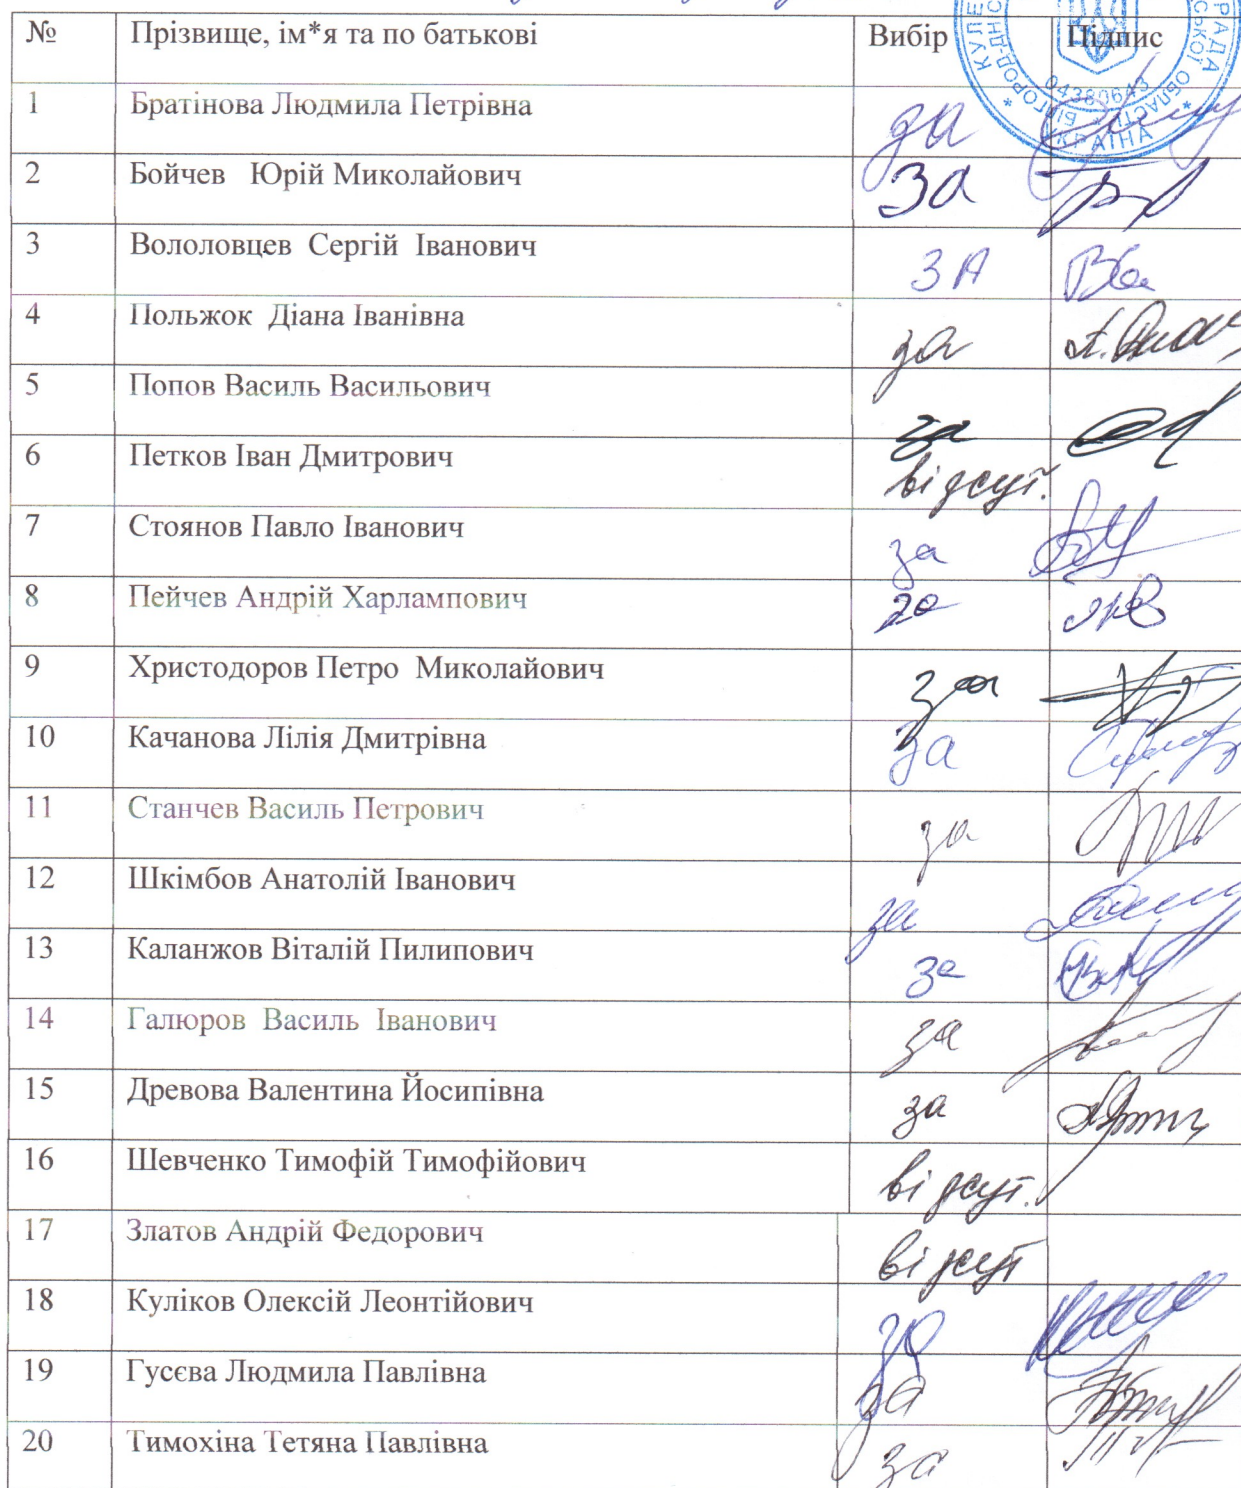 № Прізвище, ім*я та по батькові Вибір Підпис
1 Братінова Людмила Петрівна за
2 Бойчев Юрій Миколайович за
3 Вололовцев Сергій Іванович ЗА
4 Польжок Діана Іванівна за
5 Попов Василь Васильович за
6 Петков Іван Дмитрович відсут.
7 Стоянов Павло Іванович за
8 Пейчев Андрій Харлампович за
9 Христодоров Петро Миколайович за
10 Качанова Лілія Дмитрівна за
11 Станчев Василь Петрович за
12 Шкімбов Анатолій Іванович за
13 Каланжов Віталій Пилипович за
14 Галюров Василь Іванович за
15 Древова Валентина Йосипівна за
16 Шевченко Тимофій Тимофійович відсут.
17 Златов Андрій Федорович відсут
18 Куліков Олексій Леонтійович за
19 Гусєва Людмила Павлівна за
20 Тимохіна Тетяна Павлівна за
04380643
УКРАЇНА